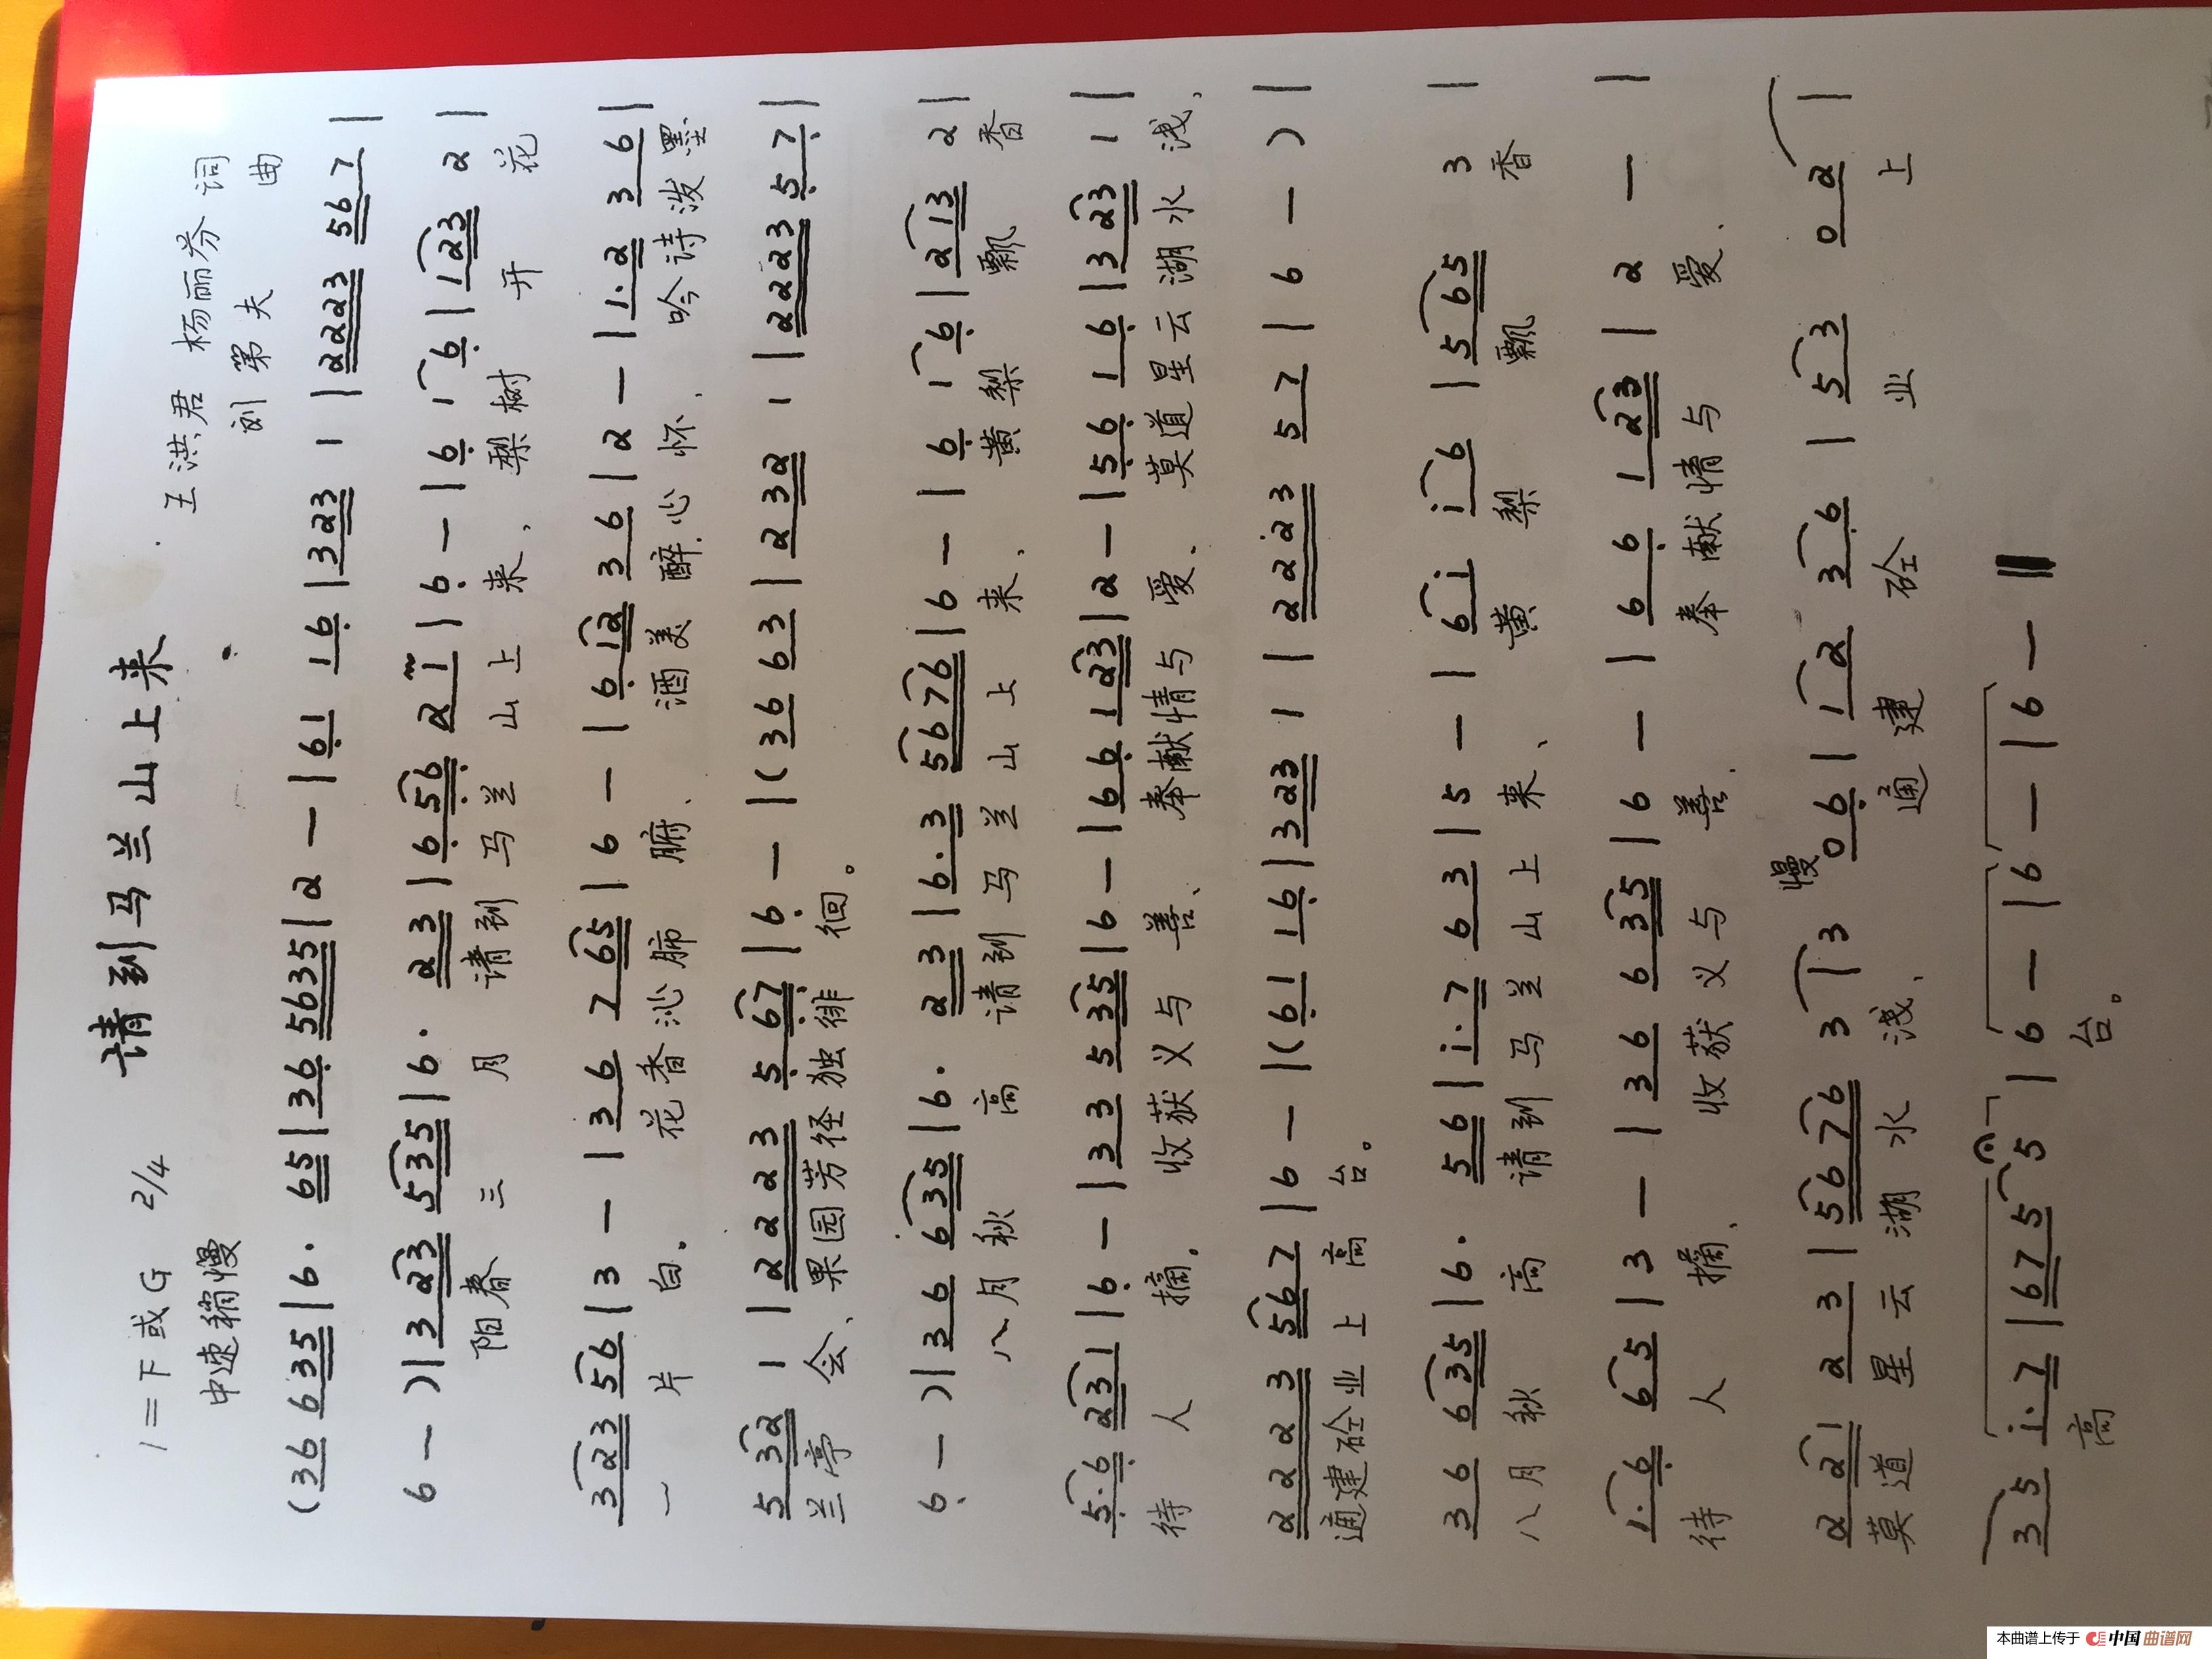 请到马兰山上来
王洪君 杨丽芬 词
1=F或G 2/4
刘第夫 曲
中速稍慢
(36 6 35 | 6· 65 | 36 5635 | 2 — | 61 16 | 323 1 | 2223 567 |
6 — ) | 3 23 535 | 6· 23 | 6 56 21 | 6 — | 6 1 6 | 123 2 |
阳春三月 请到马兰山上来, 梨树开花
323 56 | 3 — | 36 7 65 | 6 — | 6 12 36 | 2 — | 1·2 36 |
一片白. 花香沁肺腑、 酒美醉心怀, 吟诗泼墨
5 32 1 | 2223 5 67 | 6 — | (36 63 | 2 32 1 | 2223 57 |
兰亭会、果园芳径独徘徊。
6 — ) | 36 6 35 | 6· 23 | 6·3 5676 | 6 — | 6 1 6 | 213 2 |
八月秋高 请到马兰山上来, 黄梨飘香
5·6 231 | 6 — | 33 5 35 | 6 — | 66 1 23 | 2 — | 56 16 | 323 1 |
待人摘, 收获义与善、奉献情与爱、莫道星云湖水浅,
2223 567 | 6 — | (61 16 | 323 1 | 2223 57 | 6 — ) |
通建砼业上高台。
36 6 35 | 6· 56 | i·7 63 | 5 — | 6i i6 | 5 65 3 |
八月秋高 请到马兰山上来、黄梨飘香
1·6 65 | 3 — | 36 6 35 | 6 — | 66 1 23 | 2 — |
待人摘、收获义与善, 奉献情与爱、
慢
2 21 23 | 5676 3 | 3 06 | 12 36 | 53 02 |
莫道星云湖水浅、通建砼业上
35 i·7 | 675 5 | 6 — | 6 — | 6 — ‖
高台。
本曲谱上传于 中国曲谱网